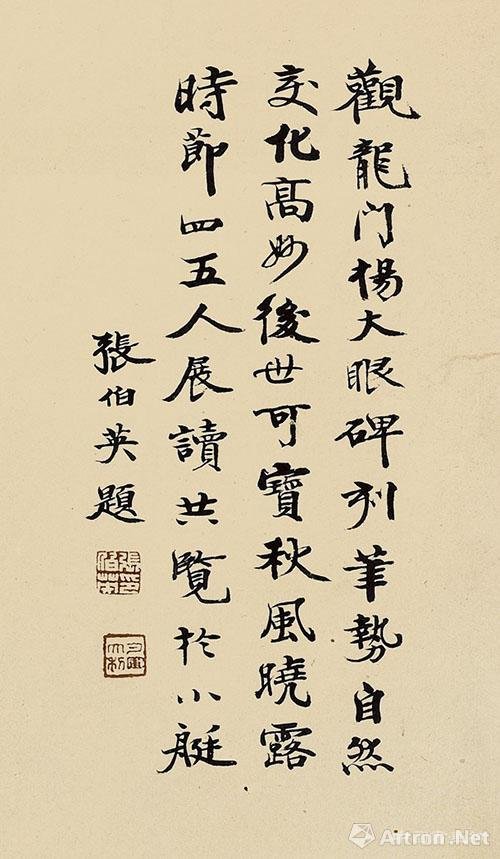 觀龍门楊大眼碑刋筆勢自然
变化高妙後世可寶秋風曉露
時節四五人展讀共覧於小艇
張伯英題
張伯英印
Artron.Net